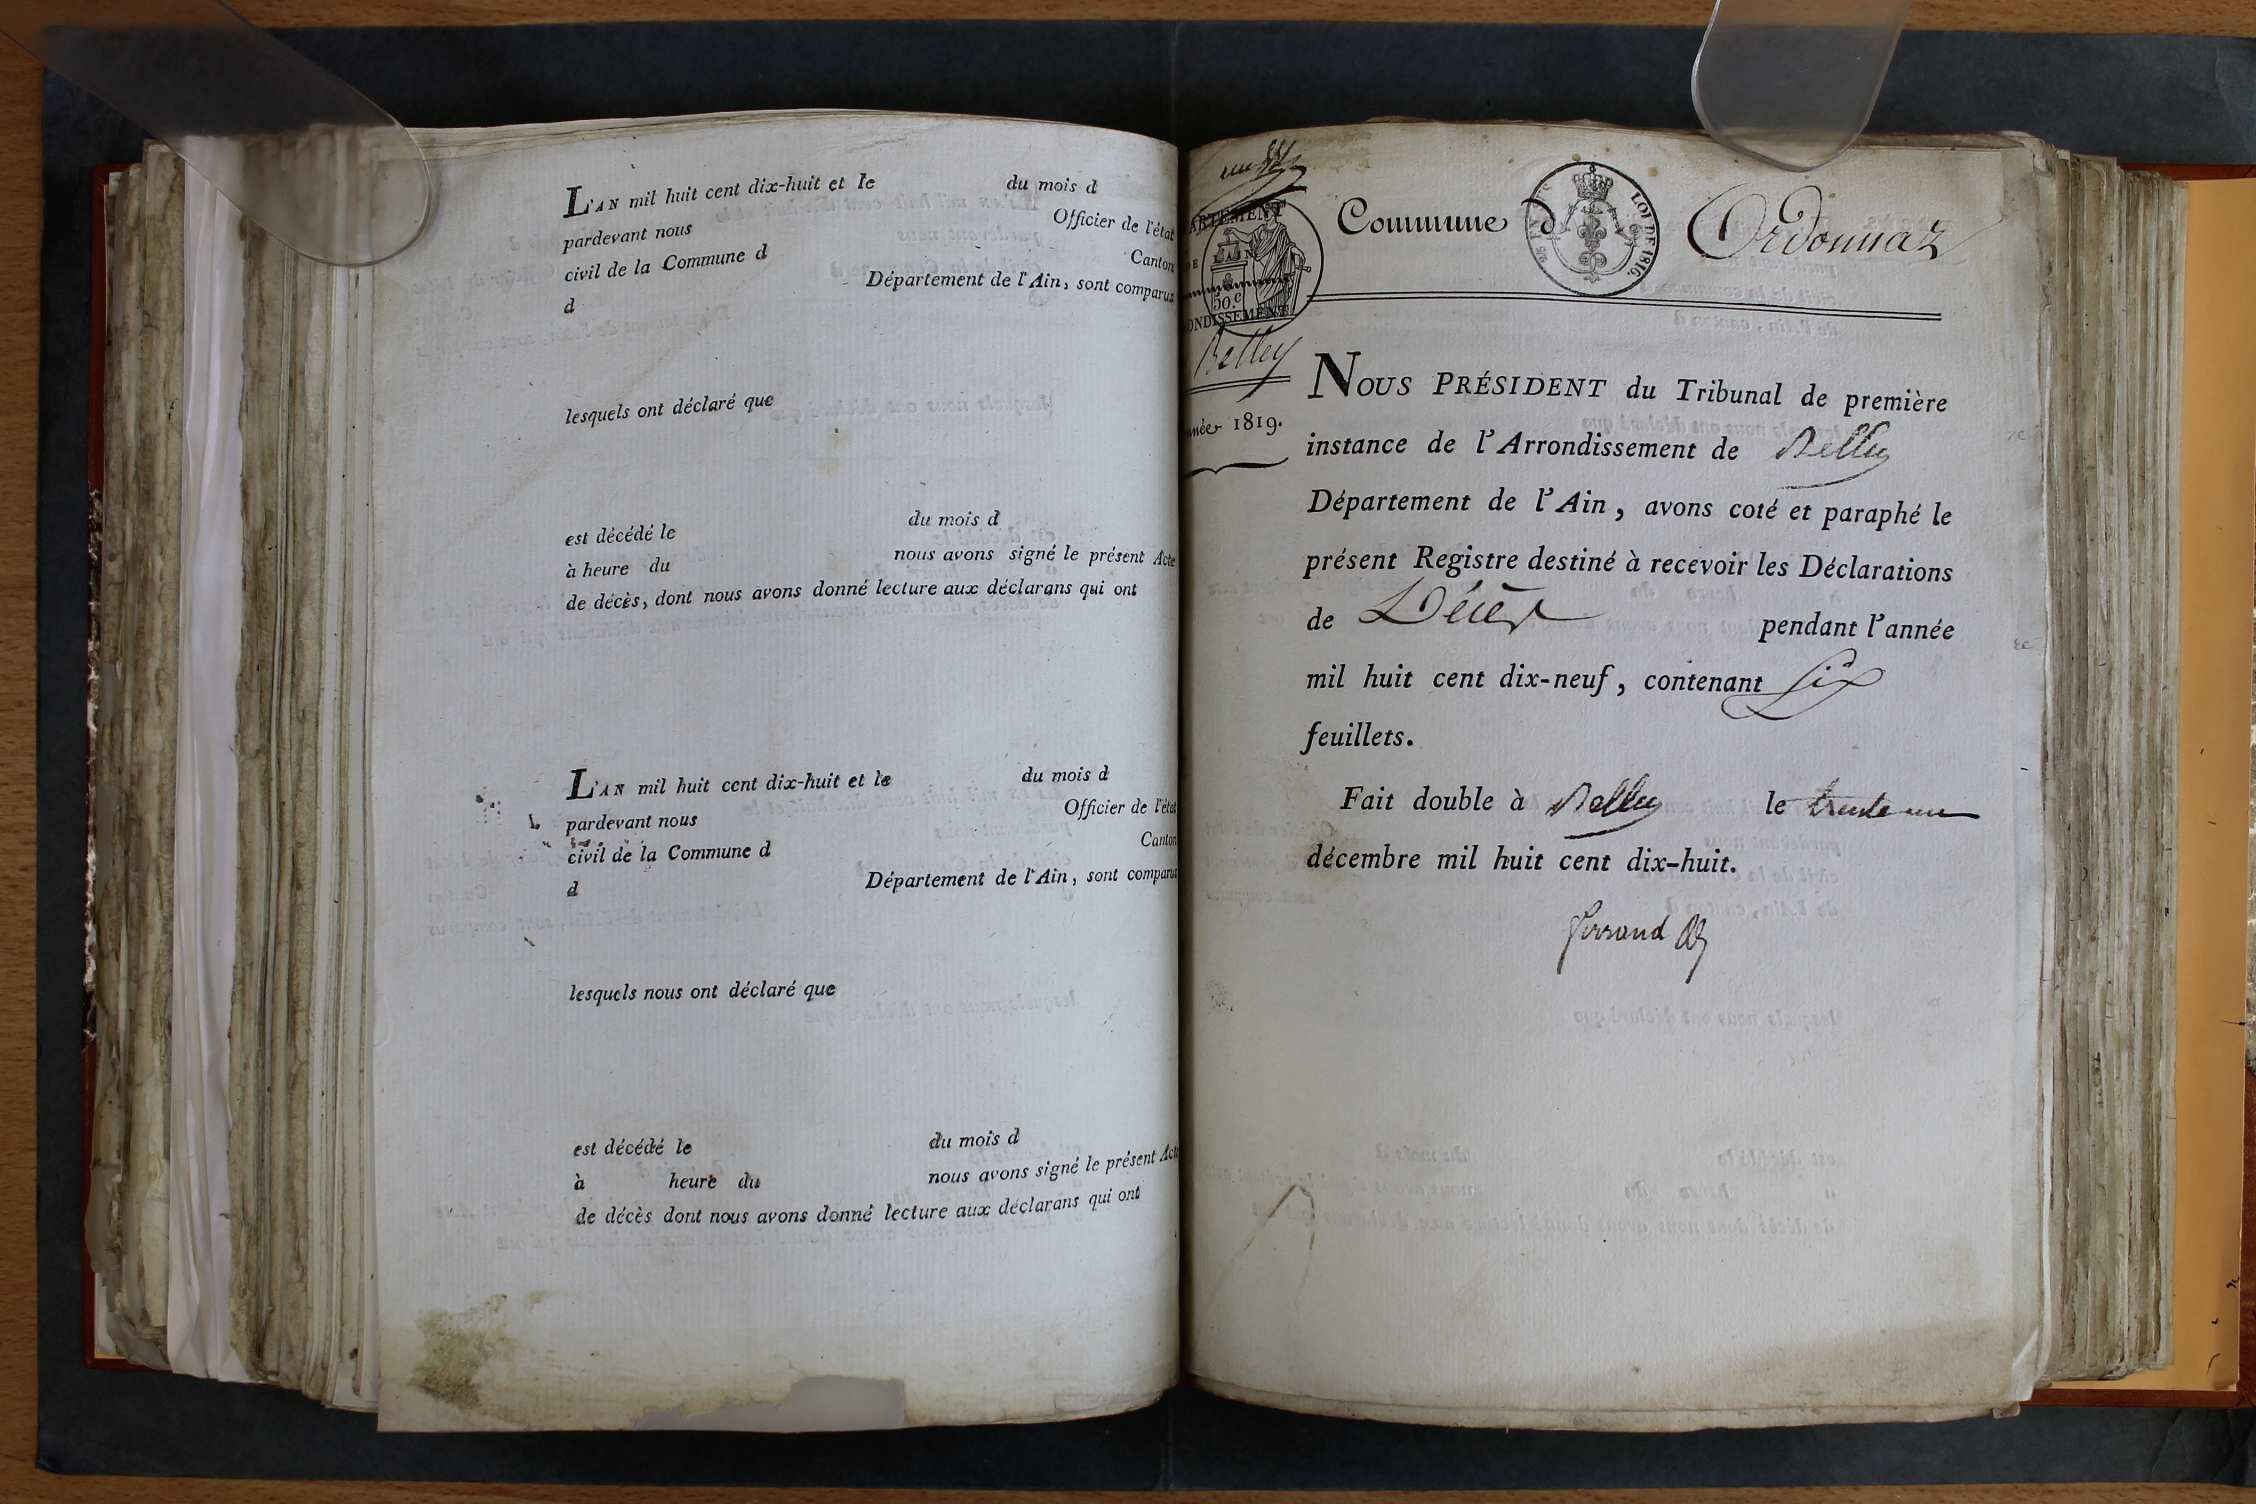 L'AN mil huit cent dix-huit et le du mois d
pardevant nous Officier de l'état
civil de la Commune d Canton
d Département de l'Ain, sont comparus
lesquels ont déclaré que
est décédé le du mois d
à heure du nous avons signé le présent Acte
de décès, dont nous avons donné lecture aux déclarans qui ont
L'AN mil huit cent dix-huit et le du mois d
pardevant nous Officier de l'état
civil de la Commune d Canton
d Département de l'Ain, sont comparus
lesquels nous ont déclaré que
est décédé le du mois d
à heure du nous avons signé le présent Acte
de décès dont nous avons donné lecture aux déclarans qui ont
ARTEMENT
DE L'AIN
50.c
ONDISSEMENT
Belley
nnée 1819.
Commune d' Ordonnaz
LOI DE 1816.
NOUS PRÉSIDENT du Tribunal de première
instance de l'Arrondissement de Belley
Département de l'Ain, avons coté et paraphé le
présent Registre destiné à recevoir les Déclarations
de Décès pendant l'année
mil huit cent dix-neuf, contenant Six
feuillets.
Fait double à Belley le trente un
décembre mil huit cent dix-huit.